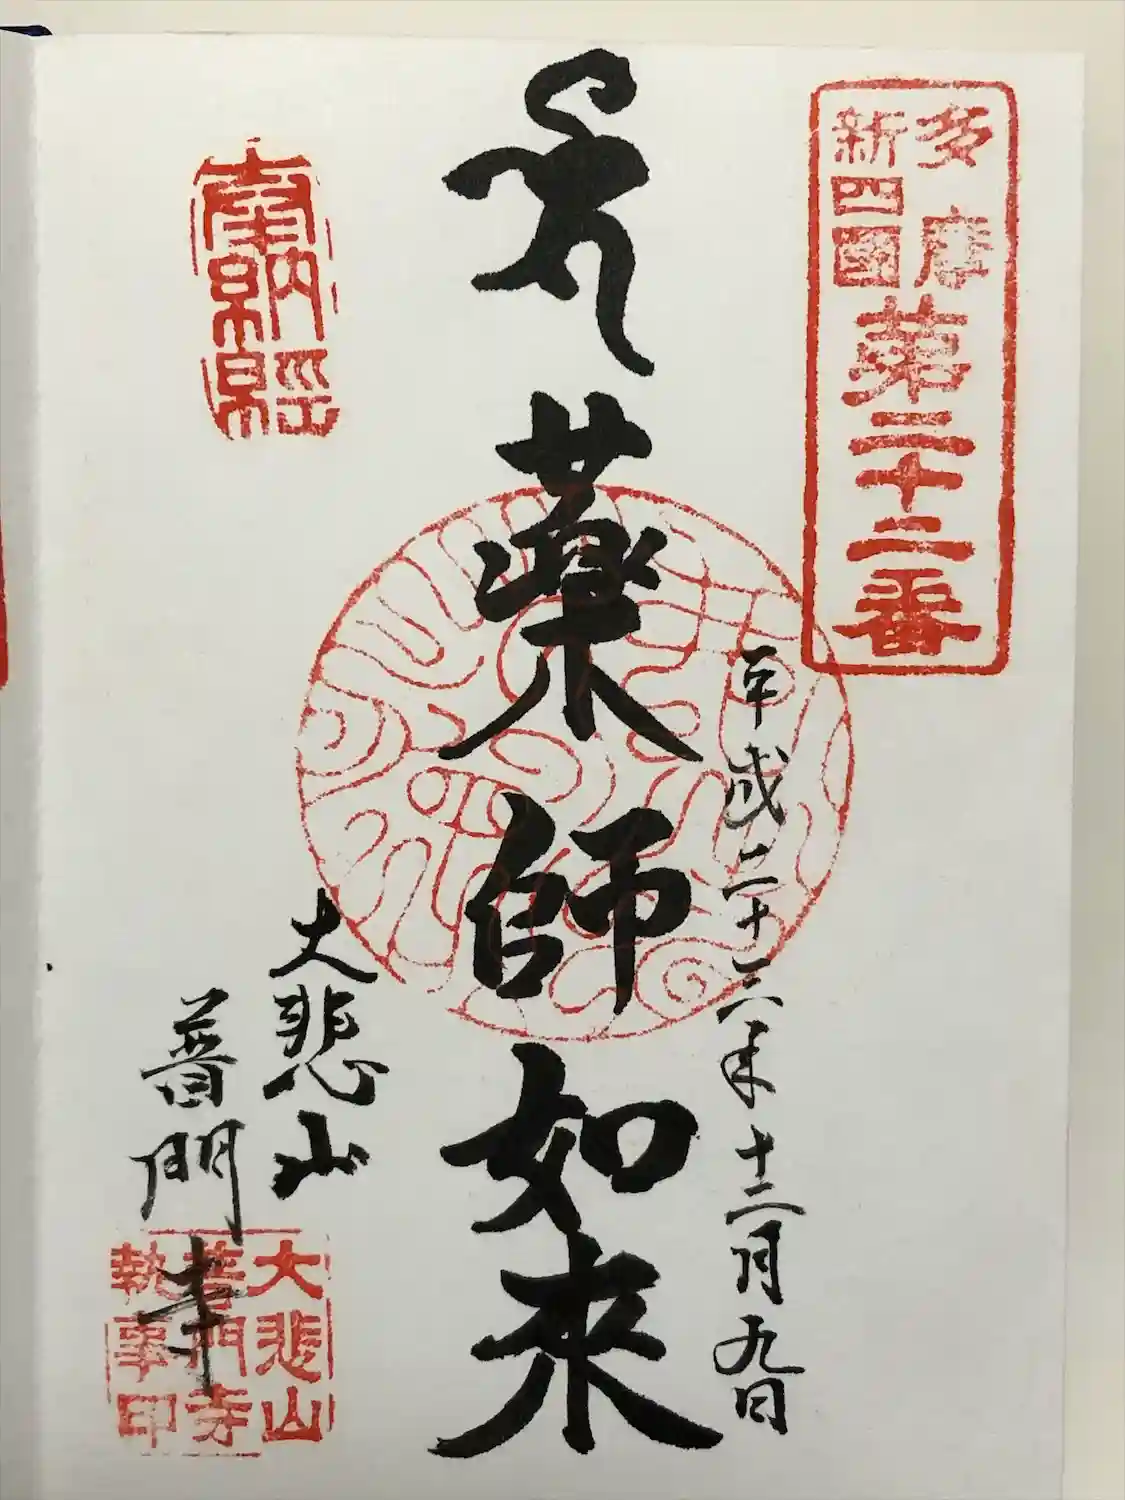 多摩
新四國
第三十二番
平成二十六年十二月九日
薬師如来
奉納經
大悲山
普門寺
大悲山
普門寺
執事印